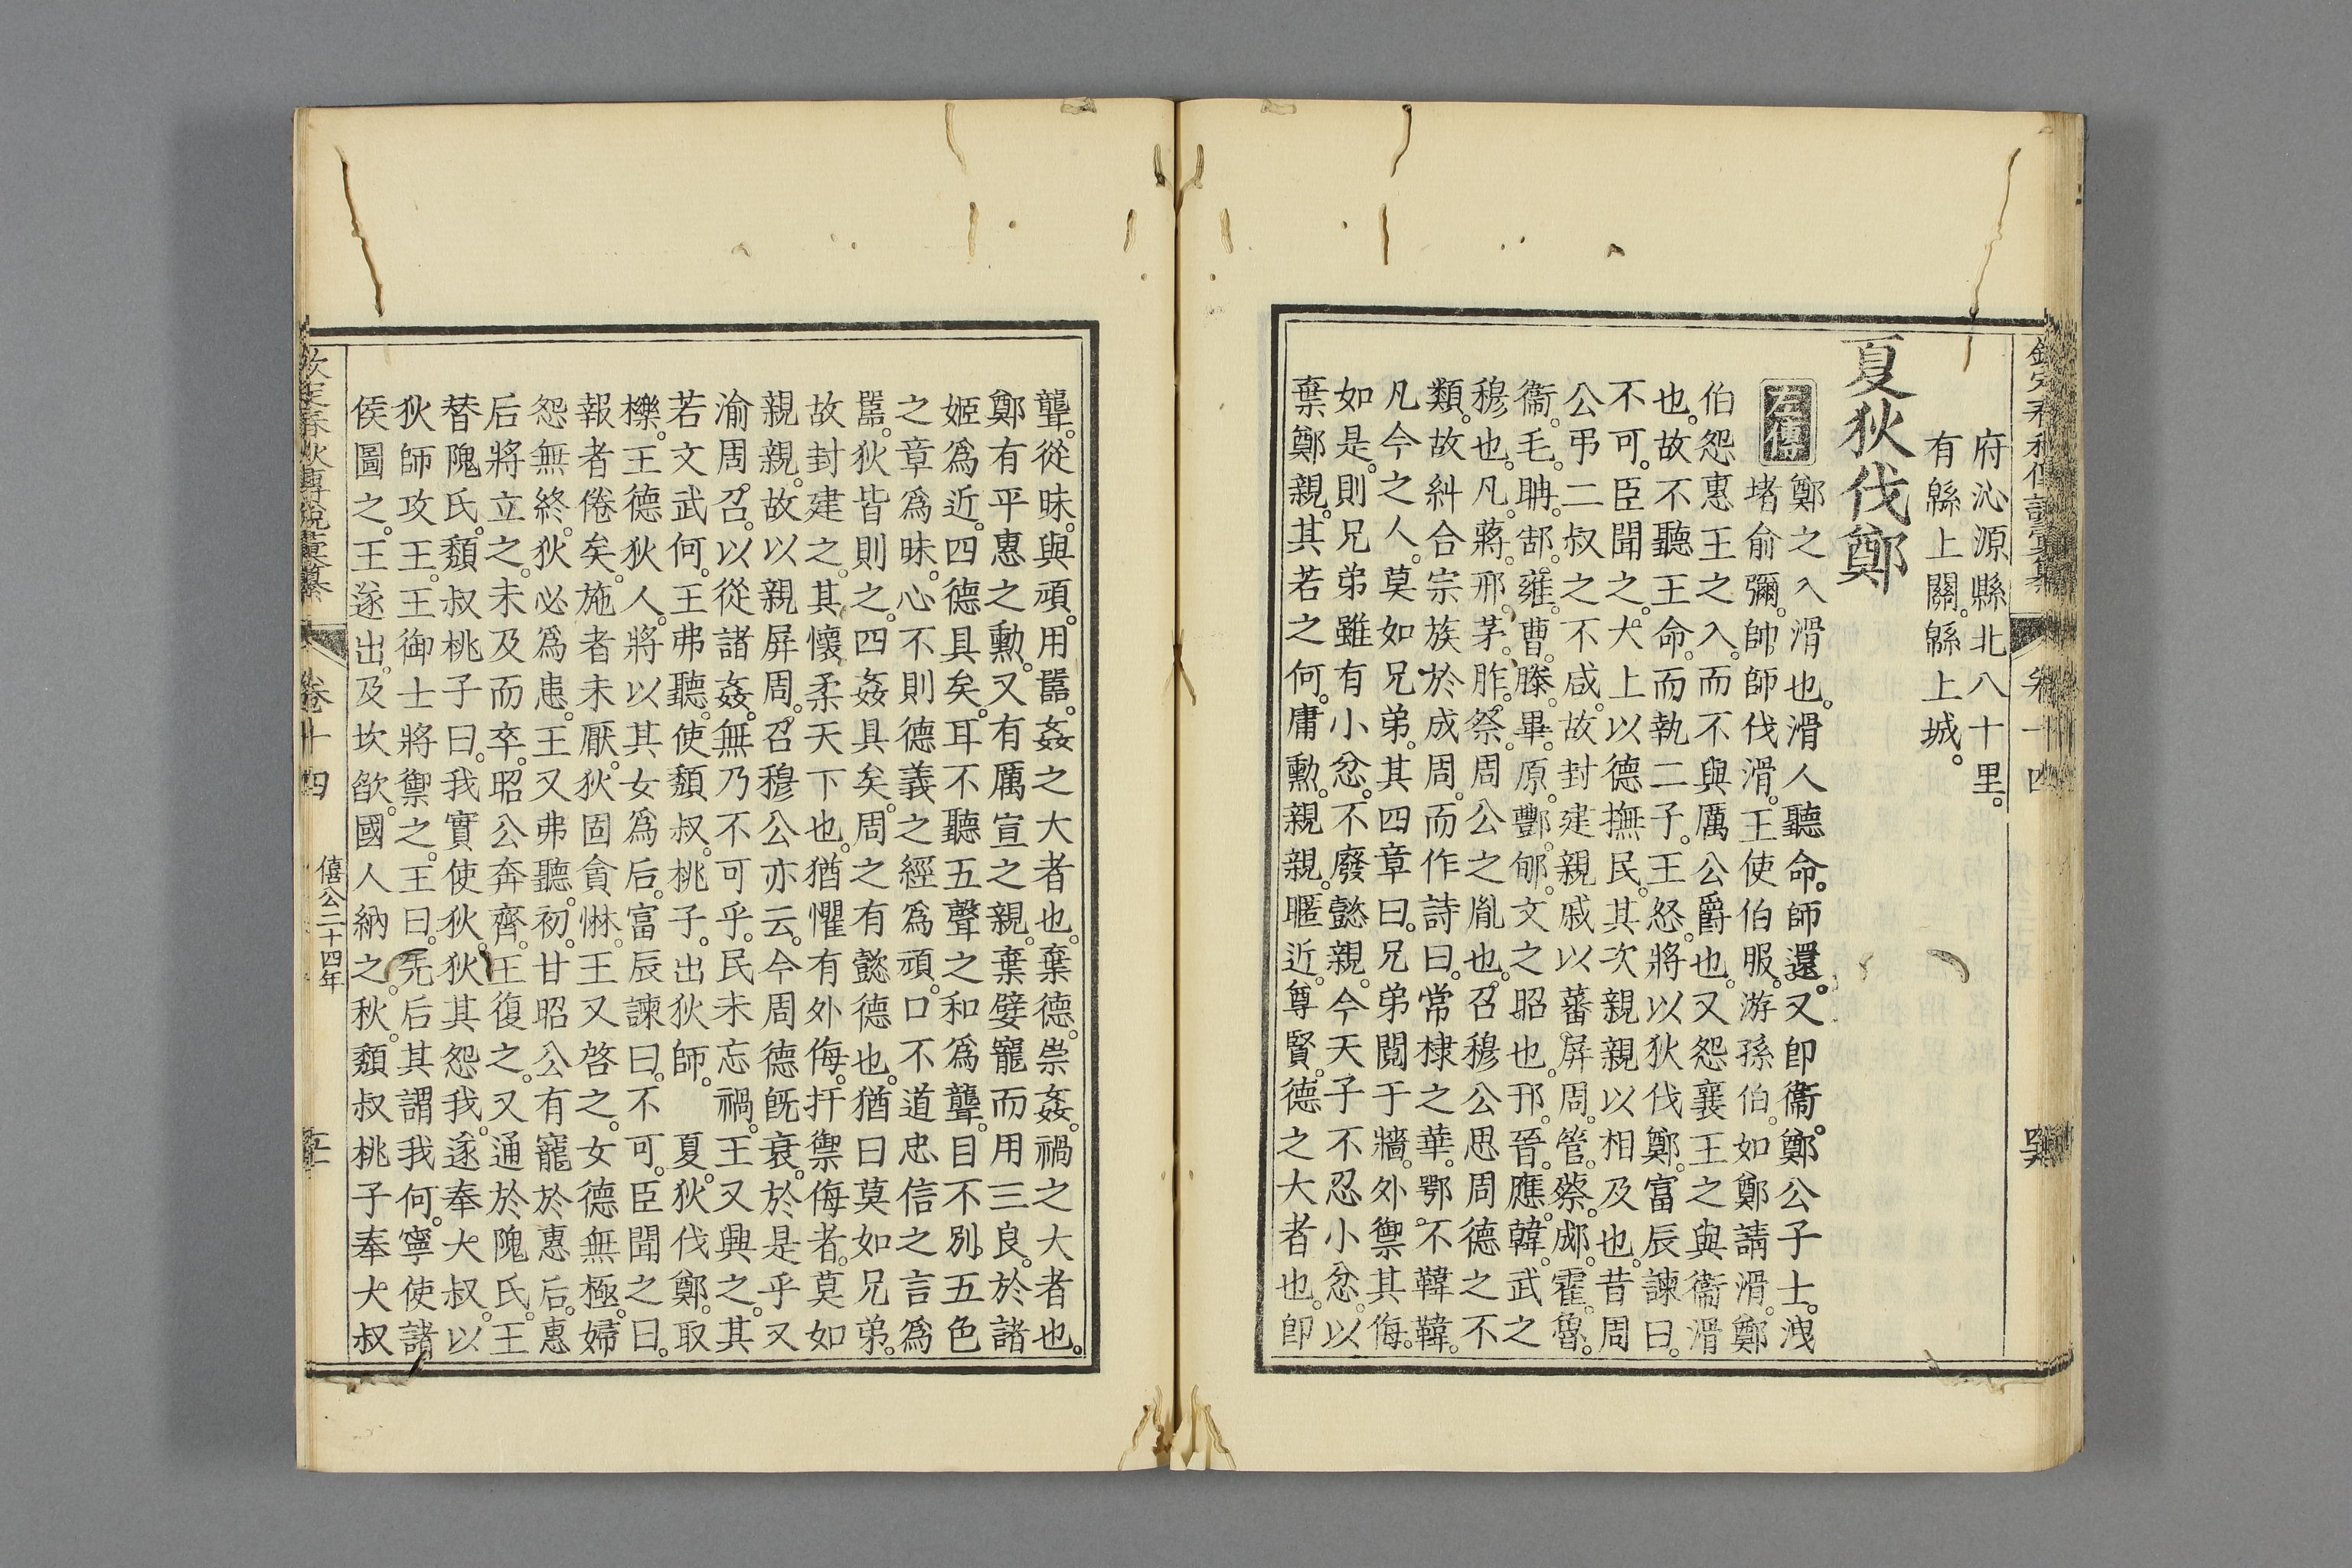 府沁源縣北八十里。
有緜上關。緜上城。
夏狄伐鄭
左傳
鄭之入滑也。滑人聽命。師還。又卽衞。鄭公子士。洩
堵俞彌。帥師伐滑。王使伯服。游孫伯。如鄭請滑。鄭
伯怨惠王之入。而不與厲公爵也。又怨襄王之與衞滑
也。故不聽王命。而執二子。王怒。將以狄伐鄭。富辰諫曰。
不可。臣聞之。大上以德撫民。其次親親以相及也。昔周
公弔二叔之不咸。故封建親戚以蕃屏周。管。蔡。郕。霍。魯。
衞。毛。聃。郜。雍。曹。滕。畢。原。酆。郇。文之昭也。邗。晉。應。韓。武之
穆也。凡。蔣。邢。茅。胙。祭。周公之胤也。召穆公思周德之不
類。故糾合宗族於成周。而作詩曰。常棣之華。鄂不韡韡。
凡今之人。莫如兄弟。其四章曰。兄弟鬩于牆。外禦其侮。
如是。則兄弟雖有小忿。不廢懿親。今天子不忍小忿。以
棄鄭親。其若之何。庸勳。親親。暱近。尊賢。德之大者也。卽
聾。從昧。與頑。用嚚。姦之大者也。棄德。崇姦。禍之大者也。
鄭有平惠之勳。又有厲宣之親。棄嬖寵而用三良。於諸
姬爲近。四德具矣。耳不聽五聲之和爲聾。目不別五色
之章爲昧。心不則德義之經爲頑。口不道忠信之言爲
嚚。狄皆則之。四姦具矣。周之有懿德也。猶曰莫如兄弟。
故封建之。其懷柔天下也。猶懼有外侮。扞禦侮者。莫如
親親。故以親屏周。召穆公亦云。今周德旣衰。於是乎又
渝周。召。以從諸姦。無乃不可乎。民未忘禍。王又興之。其
若文武何。王弗聽。使頹叔。桃子。出狄師。夏。狄伐鄭。取
櫟。王德狄人。將以其女爲后。富辰諫曰。不可。臣聞之曰。
報者倦矣。施者未厭。狄固貪惏。王又啓之。女德無極。婦
怨無終。狄必爲患。王又弗聽。初。甘昭公有寵於惠后。惠
后將立之。未及而卒。昭公奔齊。王復之。又通於隗氏。王
替隗氏。頹叔桃子曰。我實使狄。狄其怨我。遂奉大叔。以
狄師攻王。王御士將禦之。王曰。先后其謂我何。寧使諸
侯圖之。王遂出。及坎欿。國人納之。秋。頹叔桃子奉大叔
欽定春秋傳說彙纂 卷十四 僖公二十四年